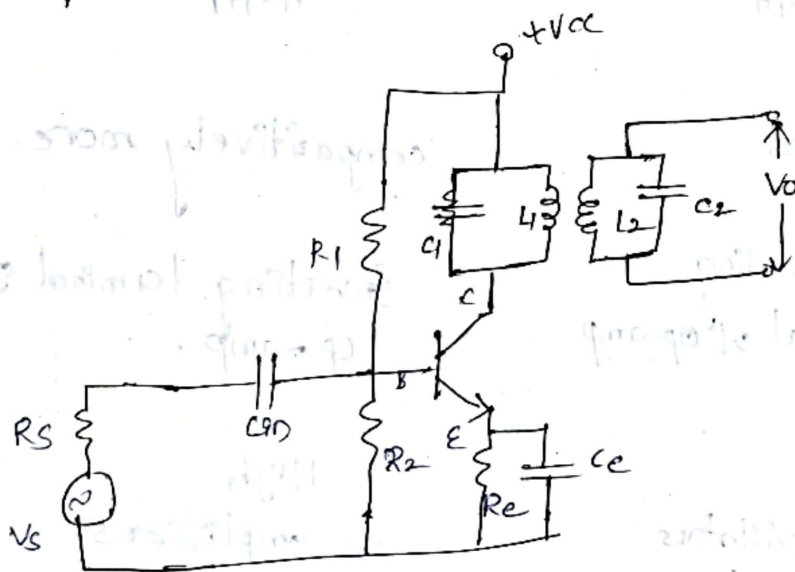 +Vcc
R1
C1
L1
L2
C2
Vo
C
B
E
Rs
Cin
R2
Re
Ce
Vs